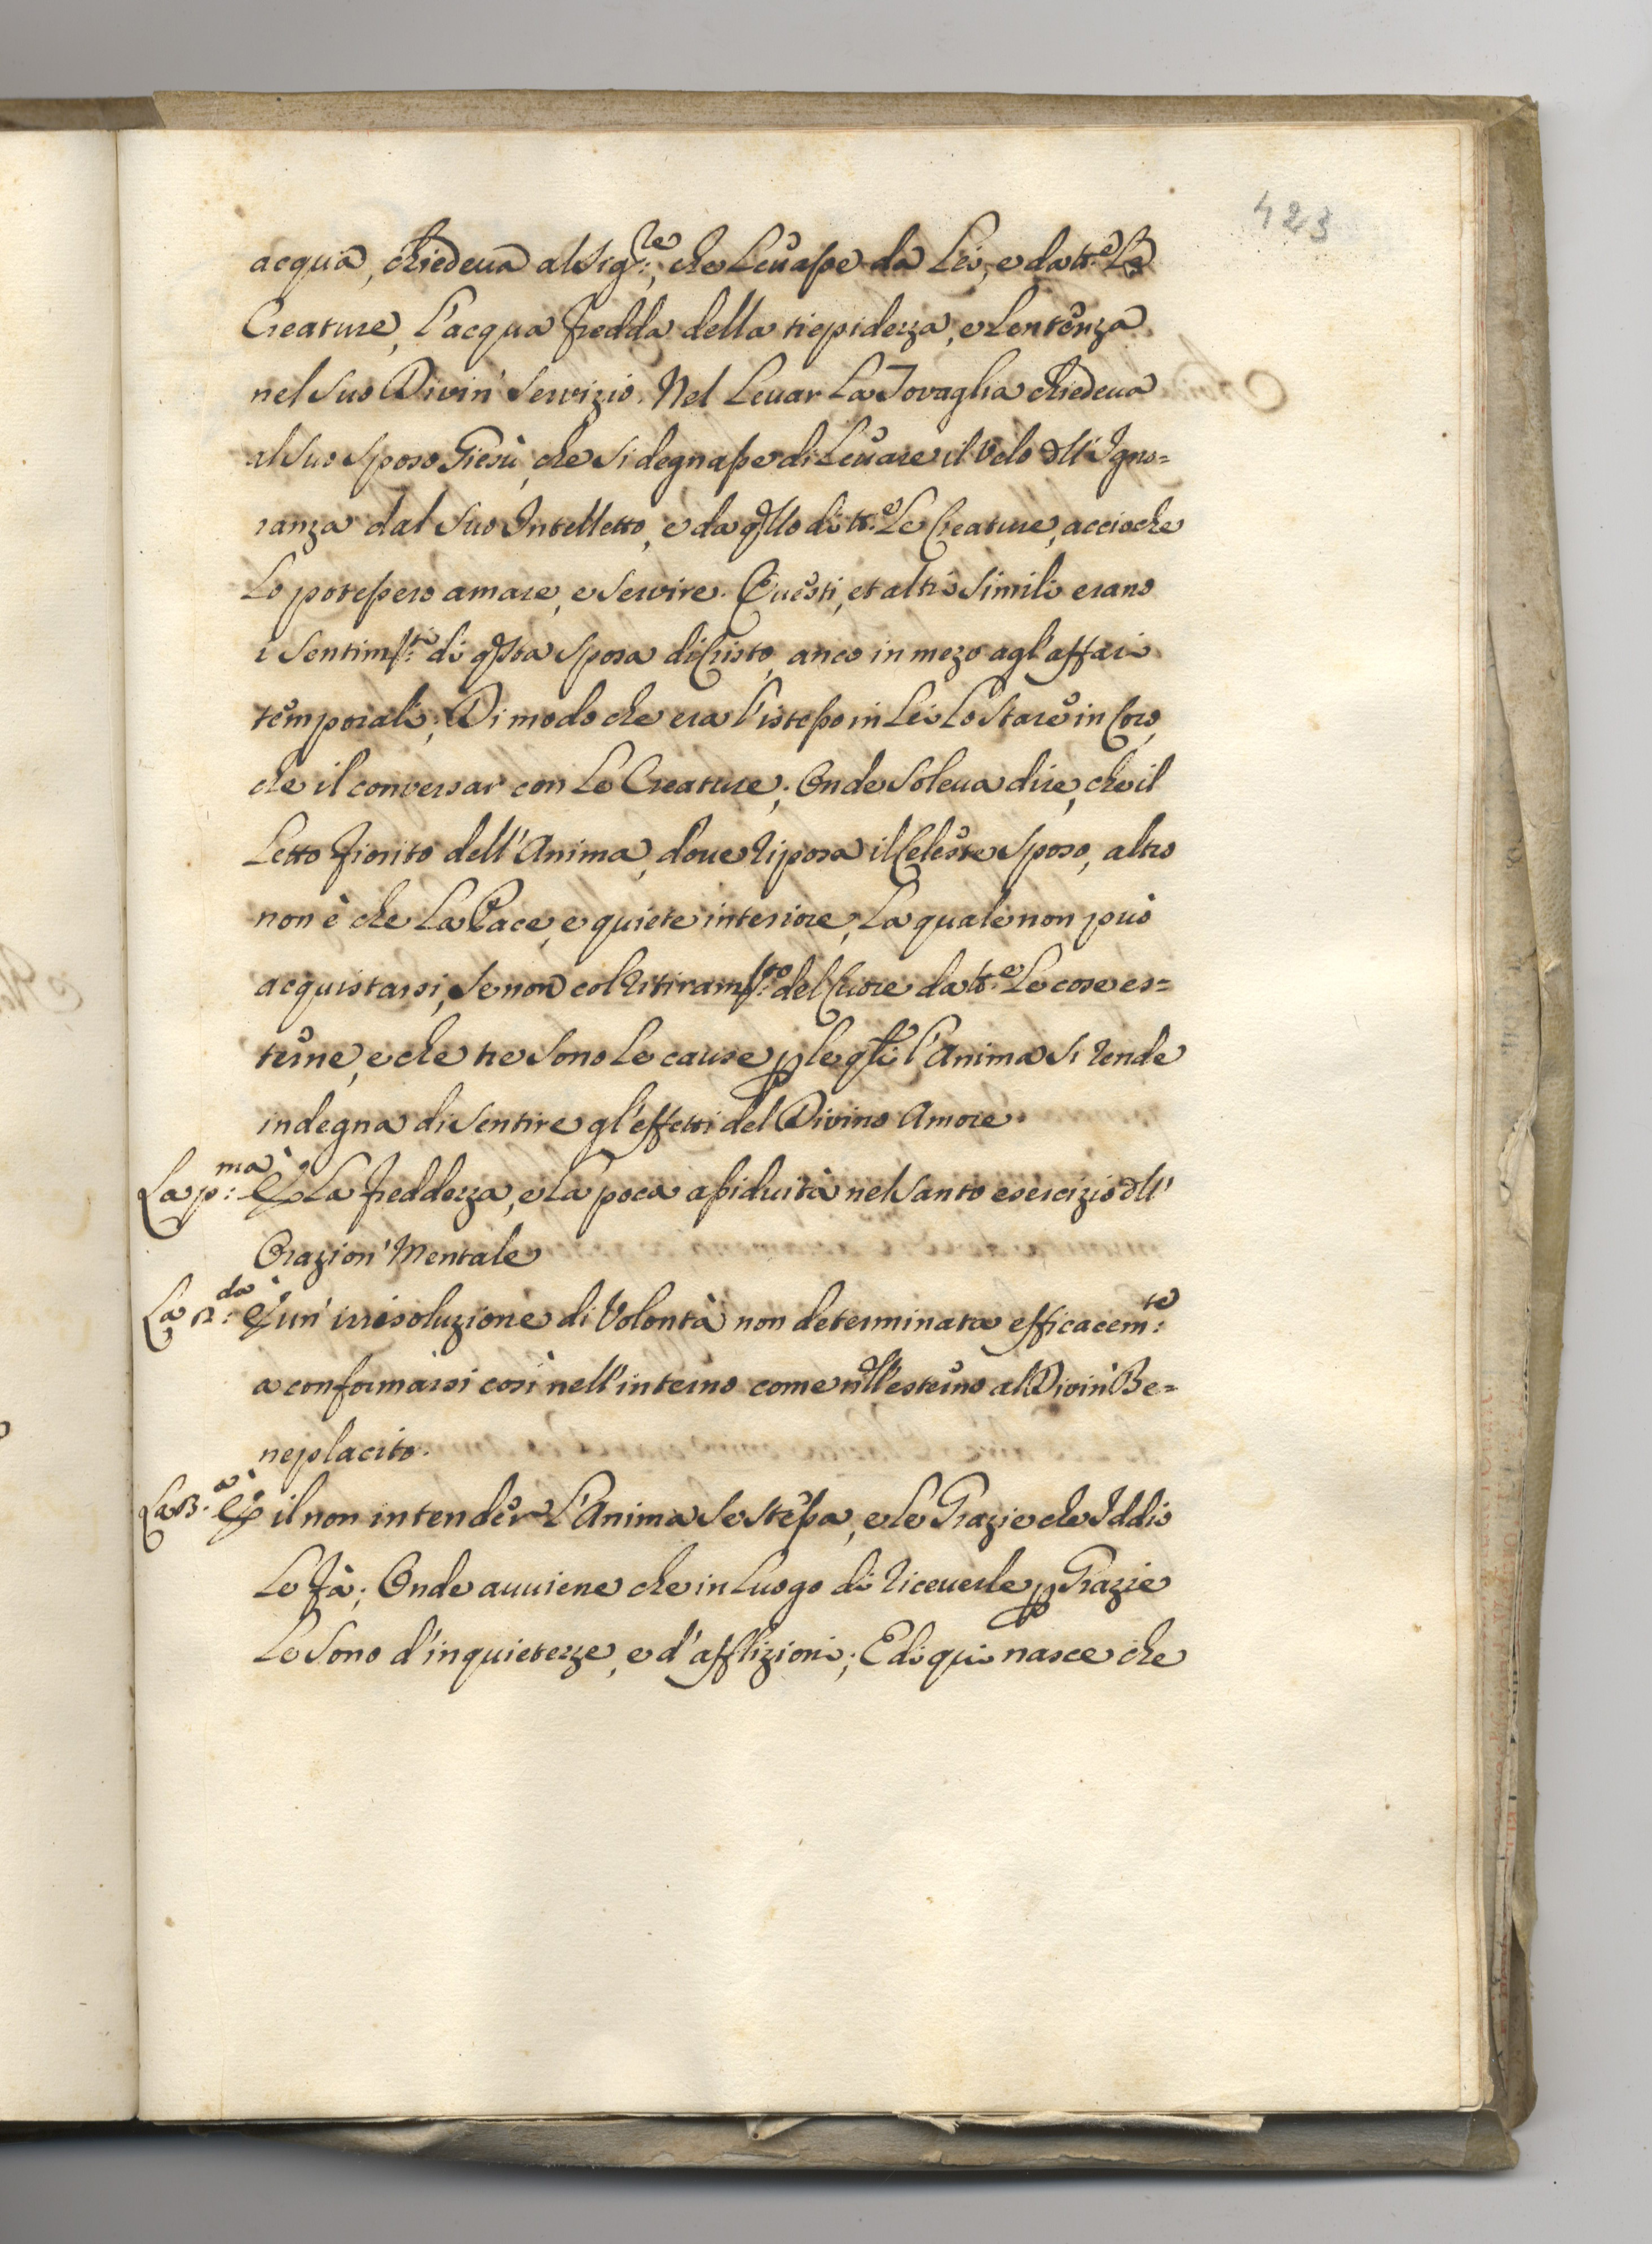 423
acqua, chiedeua al Sig:re, che Leuasse da Lei, e da tt:e Le
Creature, l'acqua fredda della tiepidezza, e Lentenza
nel Suo Divin' Servizio. Nel Leuar La Tovaglia chiedeua
al Suo Sposo Giesù, che Si degnasse di Leuare il Velo dll'Igno=
ranza dal Suo Intelletto, e da qllo di tt:e Le Creature, accioche
Lo potessero amare, e Servire. Questi, et altri Simili erano
i Sentim:ti di qsta Sposa di Cristo, anco in mezo agl'affari
temporali; Di modo che era l'istesso in Lei Lo Stare in Coro,
che il conversar con Le Creature; Onde Soleua dire, che il
Letto fiorito dell'Anima, doue riposa il Celeste Sposo, altro
non è che La Pace, e quiete interiore, La quale non può
acquistarsi, Se non col ritiram:to del Cuore da tt:e Le cose es=
terne, e che tre Sono Le cause p le qli l'Anima Si rende
indegna di Sentire gl'effetti del Divino Amore.
La p:ma È La freddezza, e La poca assiduità nel Santo esercizio dll'
Orazion' Mentale
La 2:da È un' irrisoluzione di Volontà non determinata efficacem:te
a conformarsi così nell'interno come nll'esterno al Divin' Be=
neplacito.
La 3:a È il non intender L'Anima Se Stessa, e Le Grazie che Iddio
Le fà; Onde auuiene che in Luogo di riceuerle p Grazie
Le Sono d'inquietezze, e d'afflizioni; E di qui nasce che